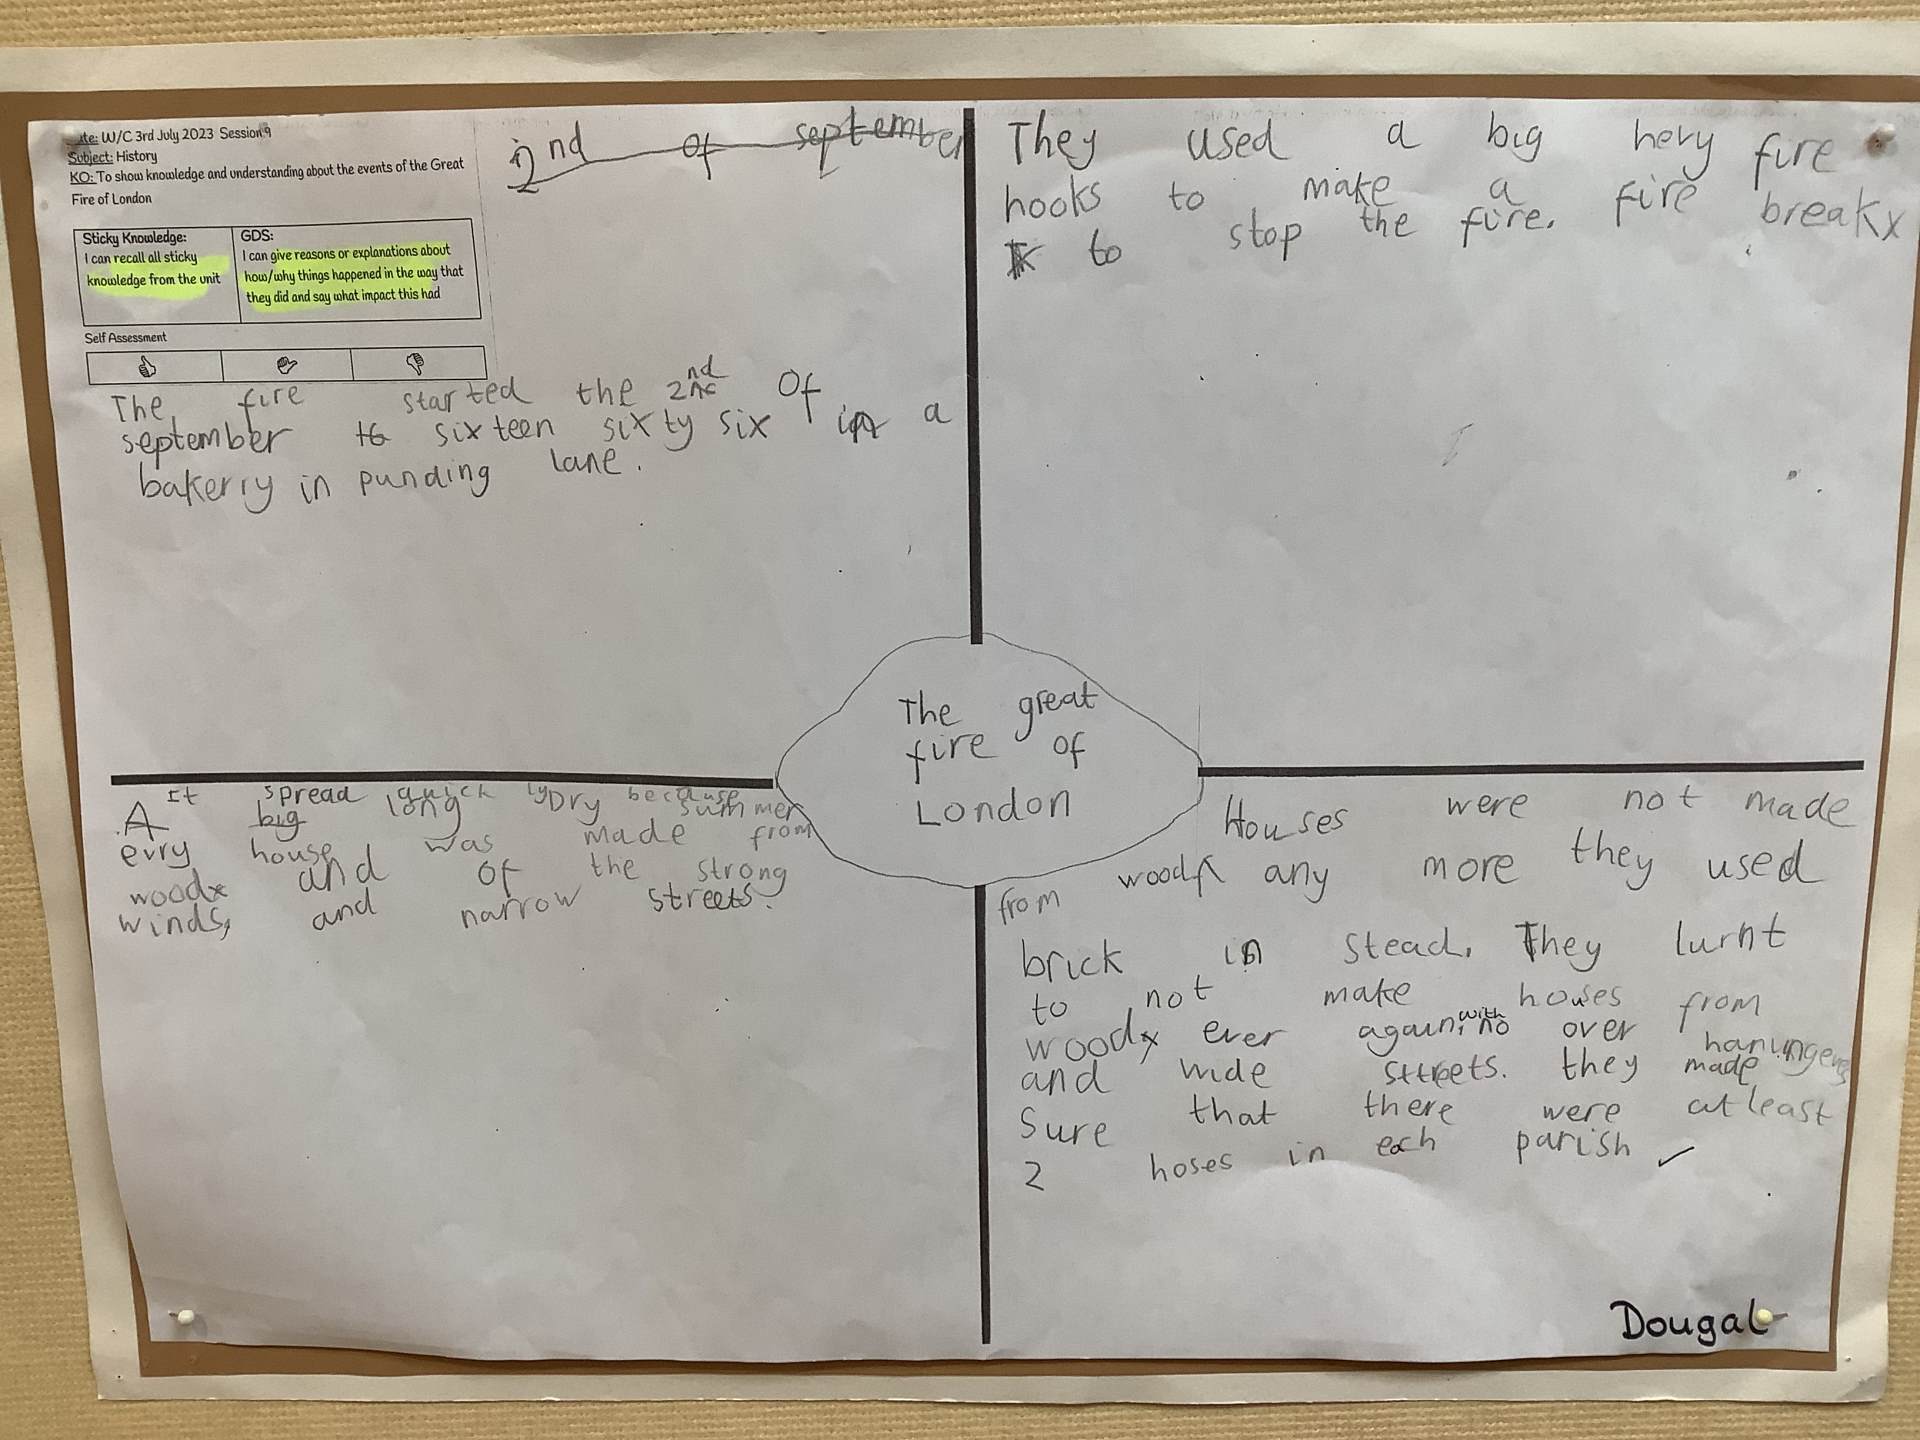 ate: W/C 3rd July 2023 Session 9
Subject: History
KO: To show knowledge and understanding about the events of the Great
Fire of London
Sticky Knowledge:
I can recall all sticky
knowledge from the unit
GDS:
I can give reasons or explanations about
how/why things happened in the way that
they did and say what impact this had
Self Assessment
2nd of september
The fire started the 2nd of
september 16 sixteen sixty six in a
bakerry in punding lane.
They used a big hevy fire
hooks to make a fire break
to stop the fire.
The great
fire of
London
It spread quickly because
A big long Dry summer
evry house was made from
wood and of the strong
winds, and narrow streets.
Houses were not made
from wood any more they used
brick in stead. They lurnt
to not make houses from
wood ever again, with no over hanungens
and wide streets. they made
Sure that there were at least
2 hoses in each parish
Dougal